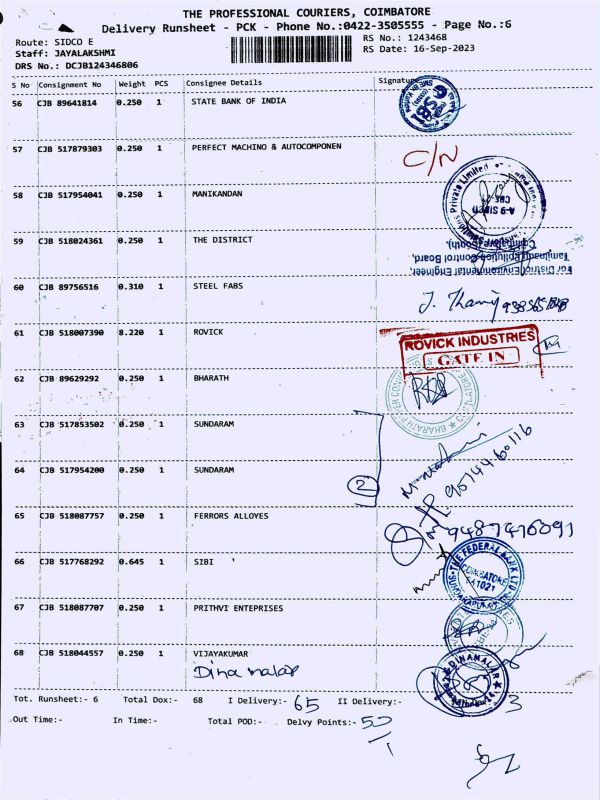 THE PROFESSIONAL COURIERS, COIMBATORE
Delivery Runsheet - PCK - Phone No.:0422-3505555 - Page No.:6
Route: SIDCO E
RS No.: 1243468
Staff: JAYALAKSHMI
RS Date: 16-Sep-2023
DRS No.: DCJB124346806
S No Consignment No Weight PCS Consignee Details Signature
56 CJB 89641814 0.250 1 STATE BANK OF INDIA
57 CJB 517879303 0.250 1 PERFECT MACHINO & AUTOCOMPONEN C/N
58 CJB 517954041 0.250 1 MANIKANDAN
Private Limited
59 CJB 518024361 0.250 1 THE DISTRICT
For District Environmental Engineer,
Control Board,
60 CJB 89756516 0.310 1 STEEL FABS
61 CJB 518007390 8.220 1 ROVICK
ROVICK INDUSTRIES
GATE IN
62 CJB 89629292 0.250 1 BHARATH
63 CJB 517853502 0.250 1 SUNDARAM
64 CJB 517954200 0.250 1 SUNDARAM
2
9514460116
65 CJB 518087757 0.250 1 FERRORS ALLOYES
9487416091
66 CJB 517768292 0.645 1 SIBI
THE FEDERAL BANK LTD
COIMBATORE
641021
67 CJB 518087707 0.250 1 PRITHVI ENTEPRISES
68 CJB 518044557 0.250 1 VIJAYAKUMAR
Dina malar
DINAMALAR
Tot. Runsheet:- 6 Total Dox:- 68 I Delivery:- 65 II Delivery:- 3
Out Time:- In Time:- Total POD:- Delvy Points:- 50